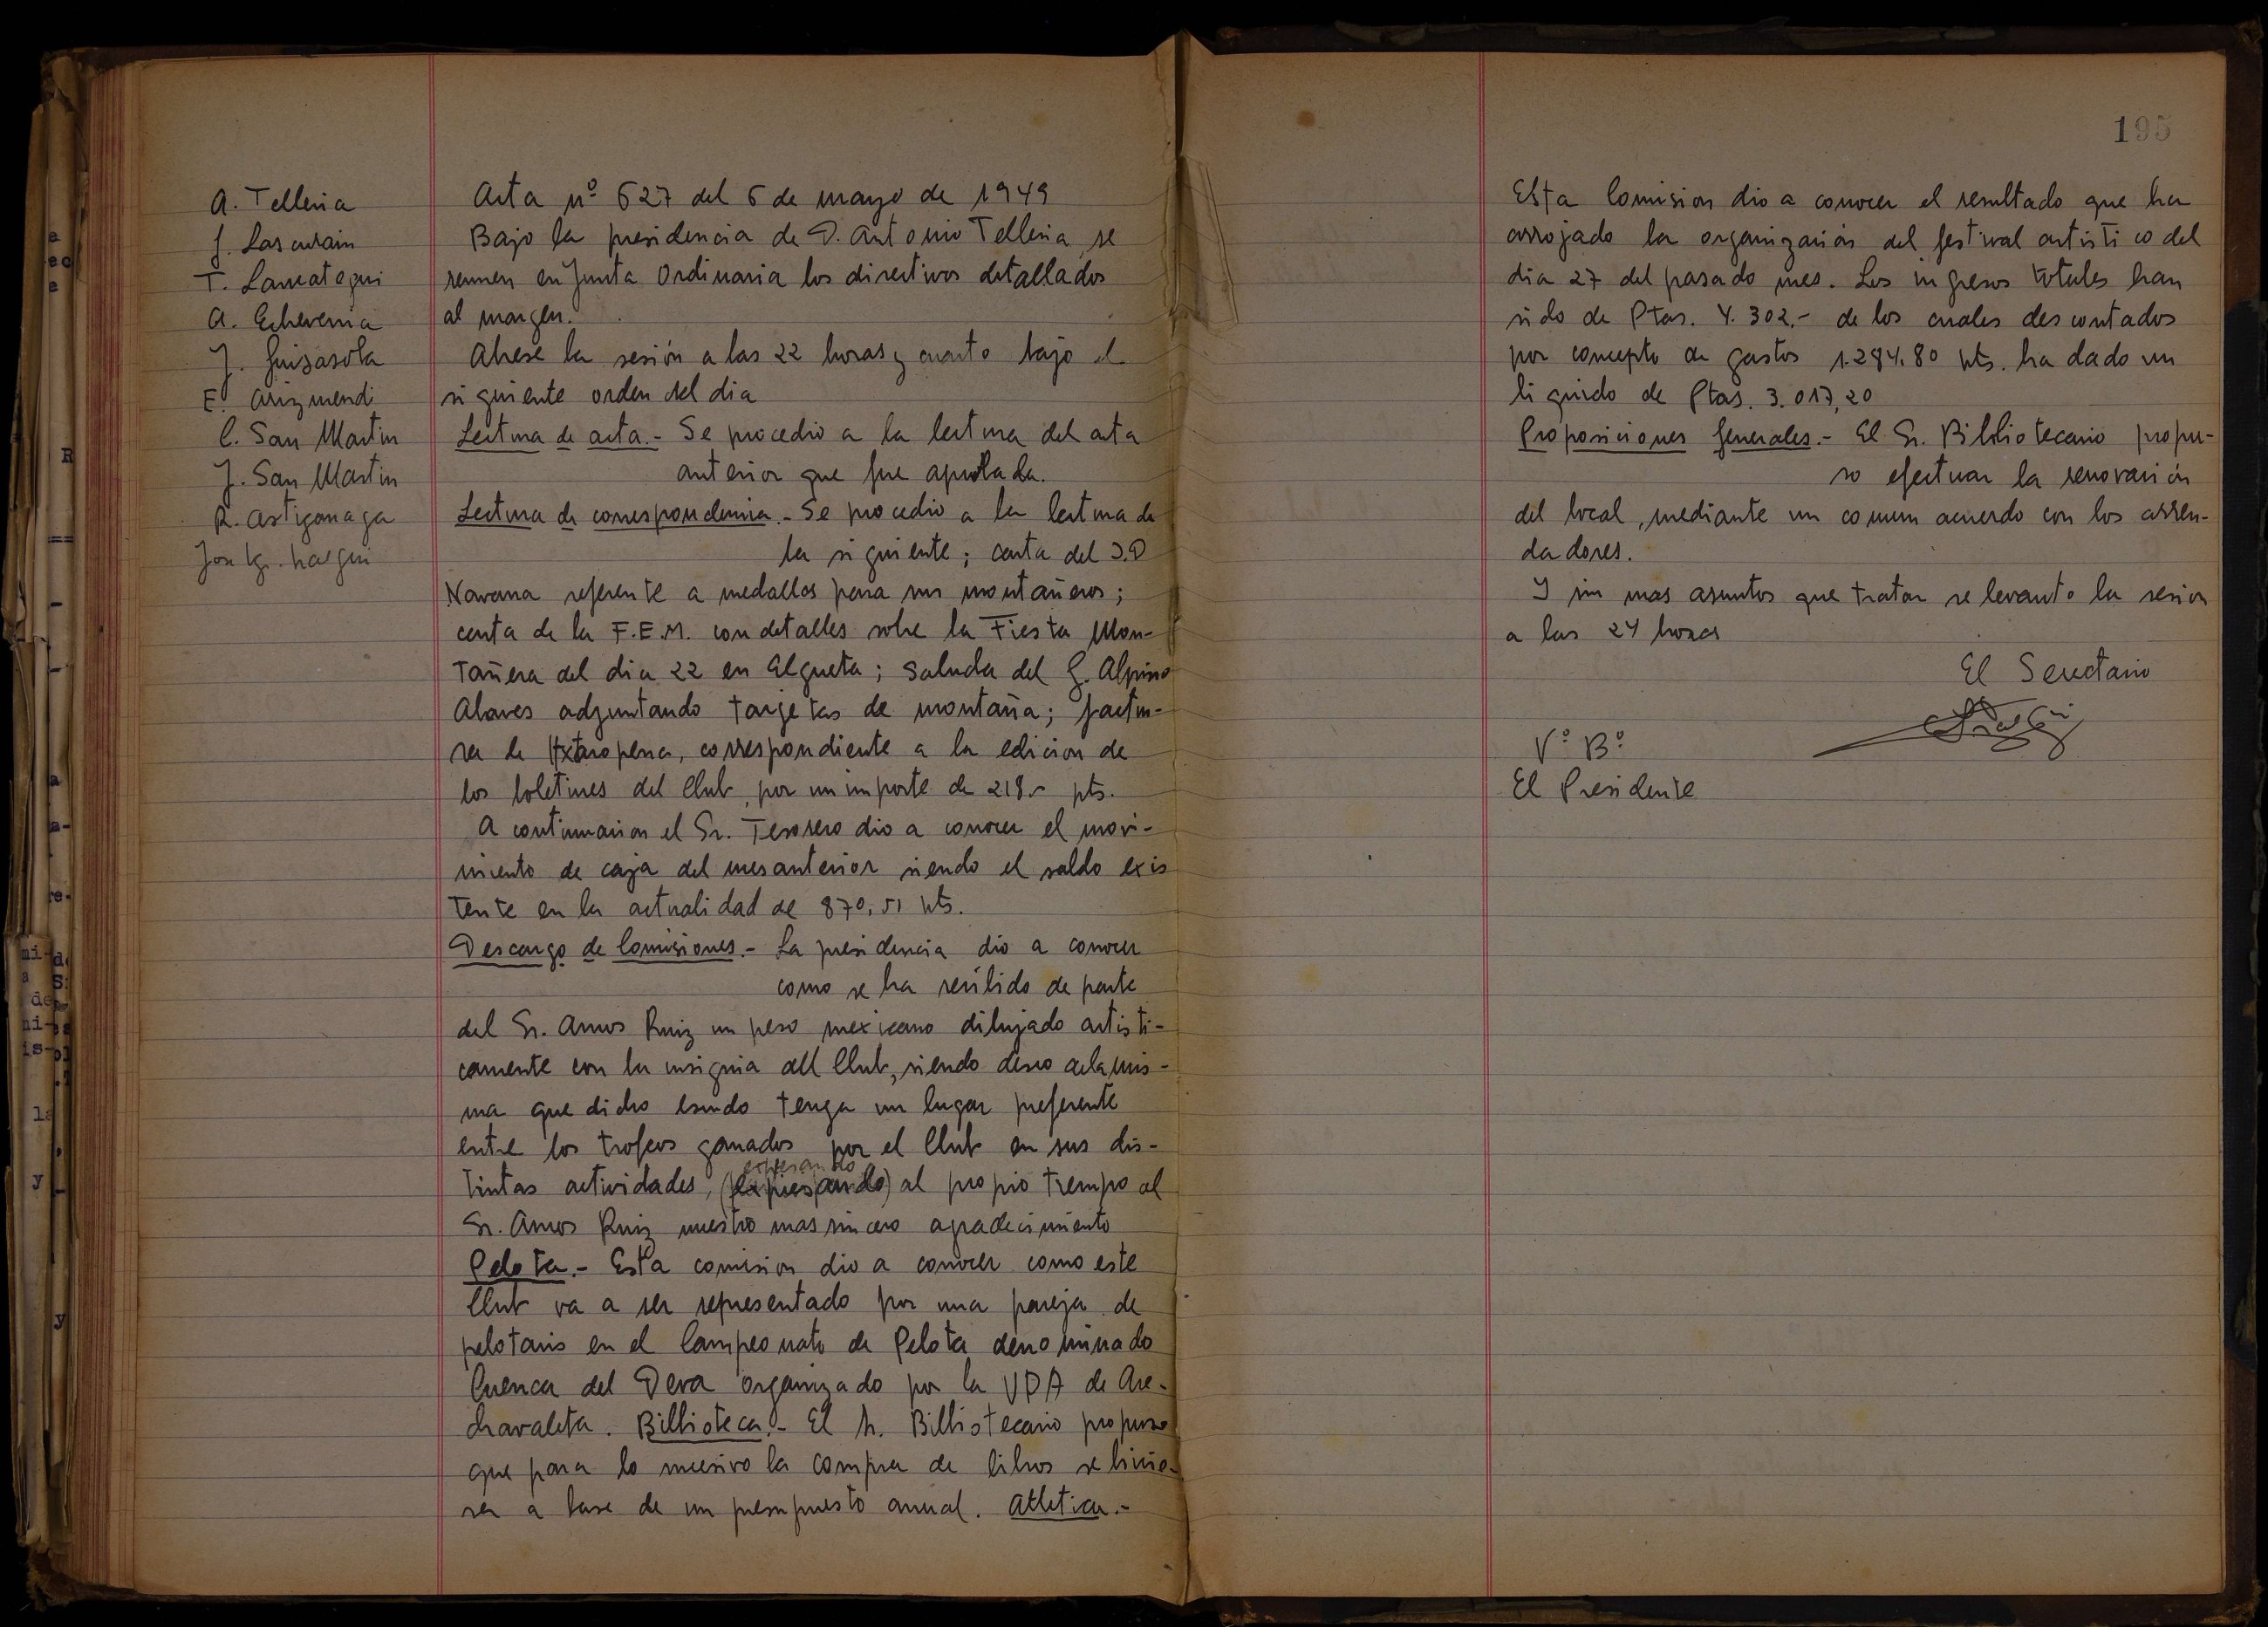 195
A. Telleria
J. Lascurain
T. Lamategui
A. Echeverria
J. Guisasola
E. Arizmendi
C. San Martin
J. San Martin
R. Astigarraga
Acta nº 627 del 6 de mayo de 1949
Bajo la presidencia de D. Antonio Telleria se
reunen en Junta Ordinaria los directivos detallados
al margen.
Abrese la sesión a las 22 horas y cuarto bajo el
siguiente orden del dia
Lectura de acta.- Se procedio a la lectura del acta
anterior que fue aprobada.
Lectura de correspondencia.- Se procedio a la lectura de
la siguiente; carta del C.D
Navarra referente a medallas para sus montañeros;
carta de la F.E.M. con detalles sobre la Fiesta Mon-
tañera del dia 22 en Elgueta; Saluda del G. Alpino
Alaves adjuntando tarjetas de montaña; factu-
ra de correspondiente a la edicion de
los boletines del Club, por un importe de 218.- pts.
A continuacion el Sr. Tesorero dio a conocer el movi-
miento de caja del mes anterior siendo el saldo exis
tente en la actualidad de 870,51 pts.
Descargo de Comisiones.- La presidencia dio a conocer
como se ha recibido de parte
del Sr. Amos Ruiz un peso mexicano dibujado artisti-
camente con la insignia del Club, siendo deseo de la mis-
ma que dicho escudo tenga un lugar preferente
entre los trofeos ganados por el Club en sus dis-
expresando
tintas actividades, (expresando) al propio tiempo al
Sr. Amos Ruiz nuestro mas sincero agradecimiento
Pelota.- Esta comision dio a conocer como este
Club va a ser representado por una pareja de
pelotaris en el Campeonato de Pelota denominado
Cuenca del Deva organizado por la UDA de Are-
chavaleta. Biblioteca.- El Sr. Bibliotecario propuso
que para lo sucesivo la compra de libros se hicie-
ra a base de un presupuesto anual. Atletica.-
Esta Comision dio a conocer el resultado que ha
arrojado la organización del festival artistico del
dia 27 del pasado mes. Los ingresos totales han
sido de Ptas. 4.302.- de los cuales descontados
por concepto de gastos 1.284.80 pts. ha dado un
liquido de Ptas. 3.017,20
Proposiciones Generales.- El Sr. Bibliotecario propu-
so efectuar la renovación
del local, mediante un comun acuerdo con los arren-
dadores.
Y sin mas asuntos que tratar se levanto la sesion
a las 24 horas
El Secretario
Vº Bº
El Presidente